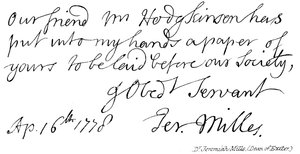 Our friend Mr Hodgkinson has
put into my hands a paper of
yours to be laid before our Society,
yr Obedt Servant
Ap. 16th. 1778 Jer. Milles.
Dr. Jeremiah Milles (Dean of Exeter)